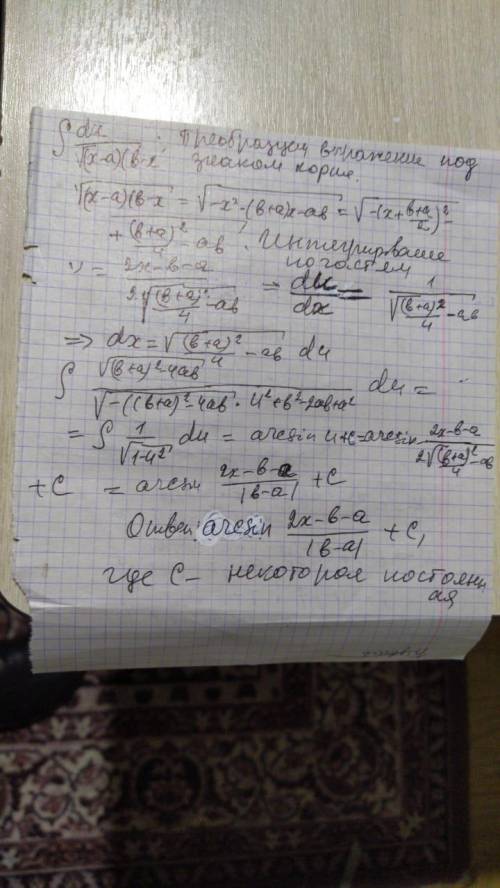 ∫ dx / √(x-a)(b-x) . Преобразуем выражение под
знаком корня.
√(x-a)(b-x = √-x²-(b+a)x-ab = √-(x+ b+a/2)²-
+ (b+a)²/4 - ab . Интегрирование
по частям
= 2x-b-a / 2·√(b+a)²/4 - ab ⇒ du/dx = 1 / √(b+a)²/4 - ab
⇒ dx = √(b+a)²/4 - ab du
∫ √(b+a)²-4ab / √-((b+a)²-4ab · u²+b²-2ab+a² du =
= ∫ 1/√1-u² du = arcsin u+c = arcsin 2x-b-a / 2√(b+a)²/4 - ab
+C = arcsin 2x-b-a / |b-a| + C
Ответ: arcsin 2x-b-a / |b-a| + C,
где C - некоторая постоянн
ая